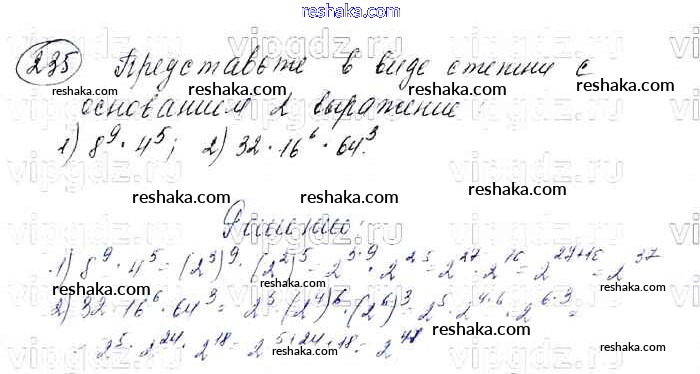 reshaka.com
235 Представьте в виде степени с
reshaka.com reshaka.com reshaka.com
основанием 2 выражение:
1) 8^9 · 4^5; 2) 32 · 16^6 · 64^3.
reshaka.com reshaka.com reshaka.com
Решение:
reshaka.com reshaka.com reshaka.com
1) 8^9 · 4^5 = (2^3)^9 · (2^2)^5 = 2^{3·9} · 2^{2·5} = 2^{27} · 2^{10} = 2^{27+10} = 2^{37}
2) 32 · 16^6 · 64^3 = 2^5 · (2^4)^6 · (2^6)^3 = 2^5 · 2^{4·6} · 2^{6·3} =
reshaka.com reshaka.com reshaka.com
2^5 · 2^{24} · 2^{18} = 2^{5+24+18} = 2^{47}
reshaka.com